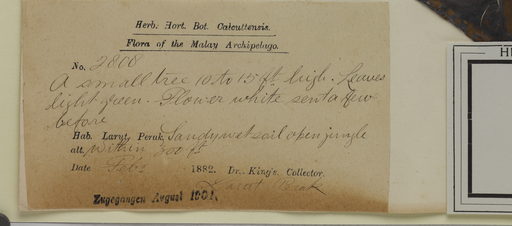 Herb. Hort. Bot. Calcuttensis.
Flora of the Malay Archipelago.
No. 2808
A small tree 10 to 15 ft high. Leaves
light green. Flower white sent a few
before
Hab. Larut, Perak, Sandy wet soil open jungle
alt. within 300 ft
Date Feb: 1882. Dr. King's Collector.
Larut Perak
Zugegangen August 1901.